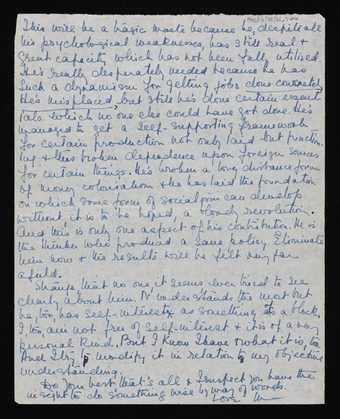 This will be a tragic waste because he, despite all
his psychological weaknesses, has still real &
great capacity which has not been fully utilised.
He's really desperately needed because he has
such a dynamism for getting jobs done concretely.
He's misplaced but still he's done certain essent-
ials which no one else could have got done. He's
managed to get a self-supporting framework
for certain production not only laid but function-
ing & this broken dependence upon foreign sources
for certain things. He's broken a long distance form
of money colonialism & he has laid the foundation
on which some form of socialism can develop
without, it is to be hoped, a bloody revolution.
And this is only one aspect of his contribution. He is
the thinker who produced a sane policy. Eliminate
him now & the results will be felt very far
afield.
Strange that no one, it seems, ever tried to see
clearly about him. N understands the most but
he, too, has self-interest as something of a block.
I, too, am not free of self-interest & it is of a very
personal kind. But I know I have & what it is, too.
And I try to modify it in relation to my objective
understanding.
Do your best, that's all & I suspect you have the
insight to do something wise by way of words.
Love